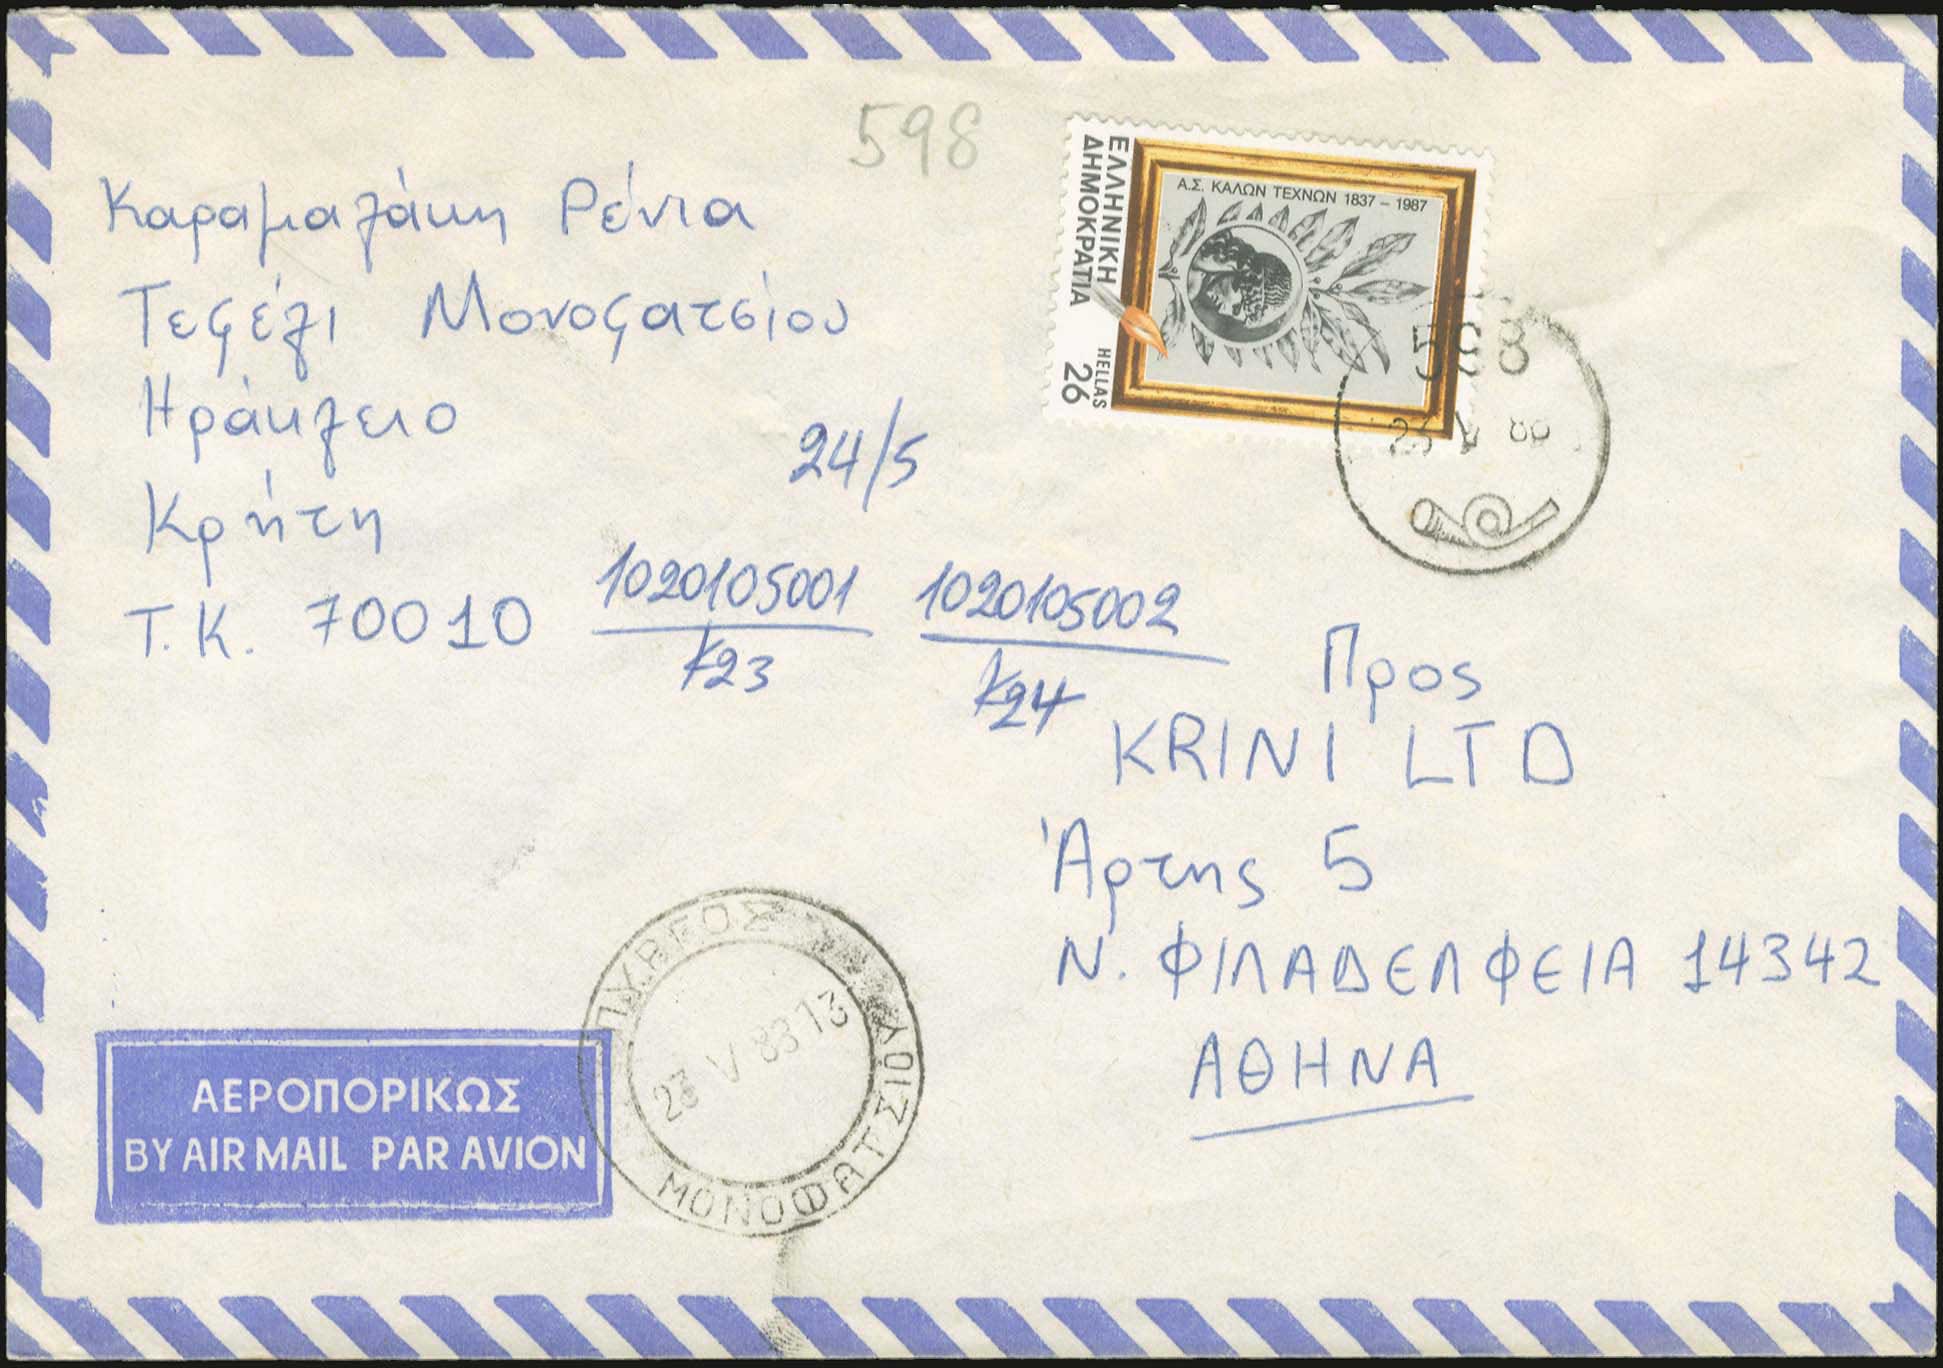 598
Καραμαζάκη Ρένια
Τεφέλι Μονοφατσίου
Ηράκλειο
Κρήτη
Τ.Κ. 70010
24/5
1020105001
Κ23
1020105002
Κ24
ΕΛΛΗΝΙΚΗ
ΔΗΜΟΚΡΑΤΙΑ
HELLAS
26
Α.Σ. ΚΑΛΩΝ ΤΕΧΝΩΝ 1837 - 1987
598
23 V 88
Προς
KRINI LTD
Άρτης 5
Ν. ΦΙΛΑΔΕΛΦΕΙΑ 14342
ΑΘΗΝΑ
ΠΥΡΓΟΣ
ΜΟΝΟΦΑΤΣΙΟΥ
23 V 88 13
ΑΕΡΟΠΟΡΙΚΩΣ
BY AIR MAIL PAR AVION